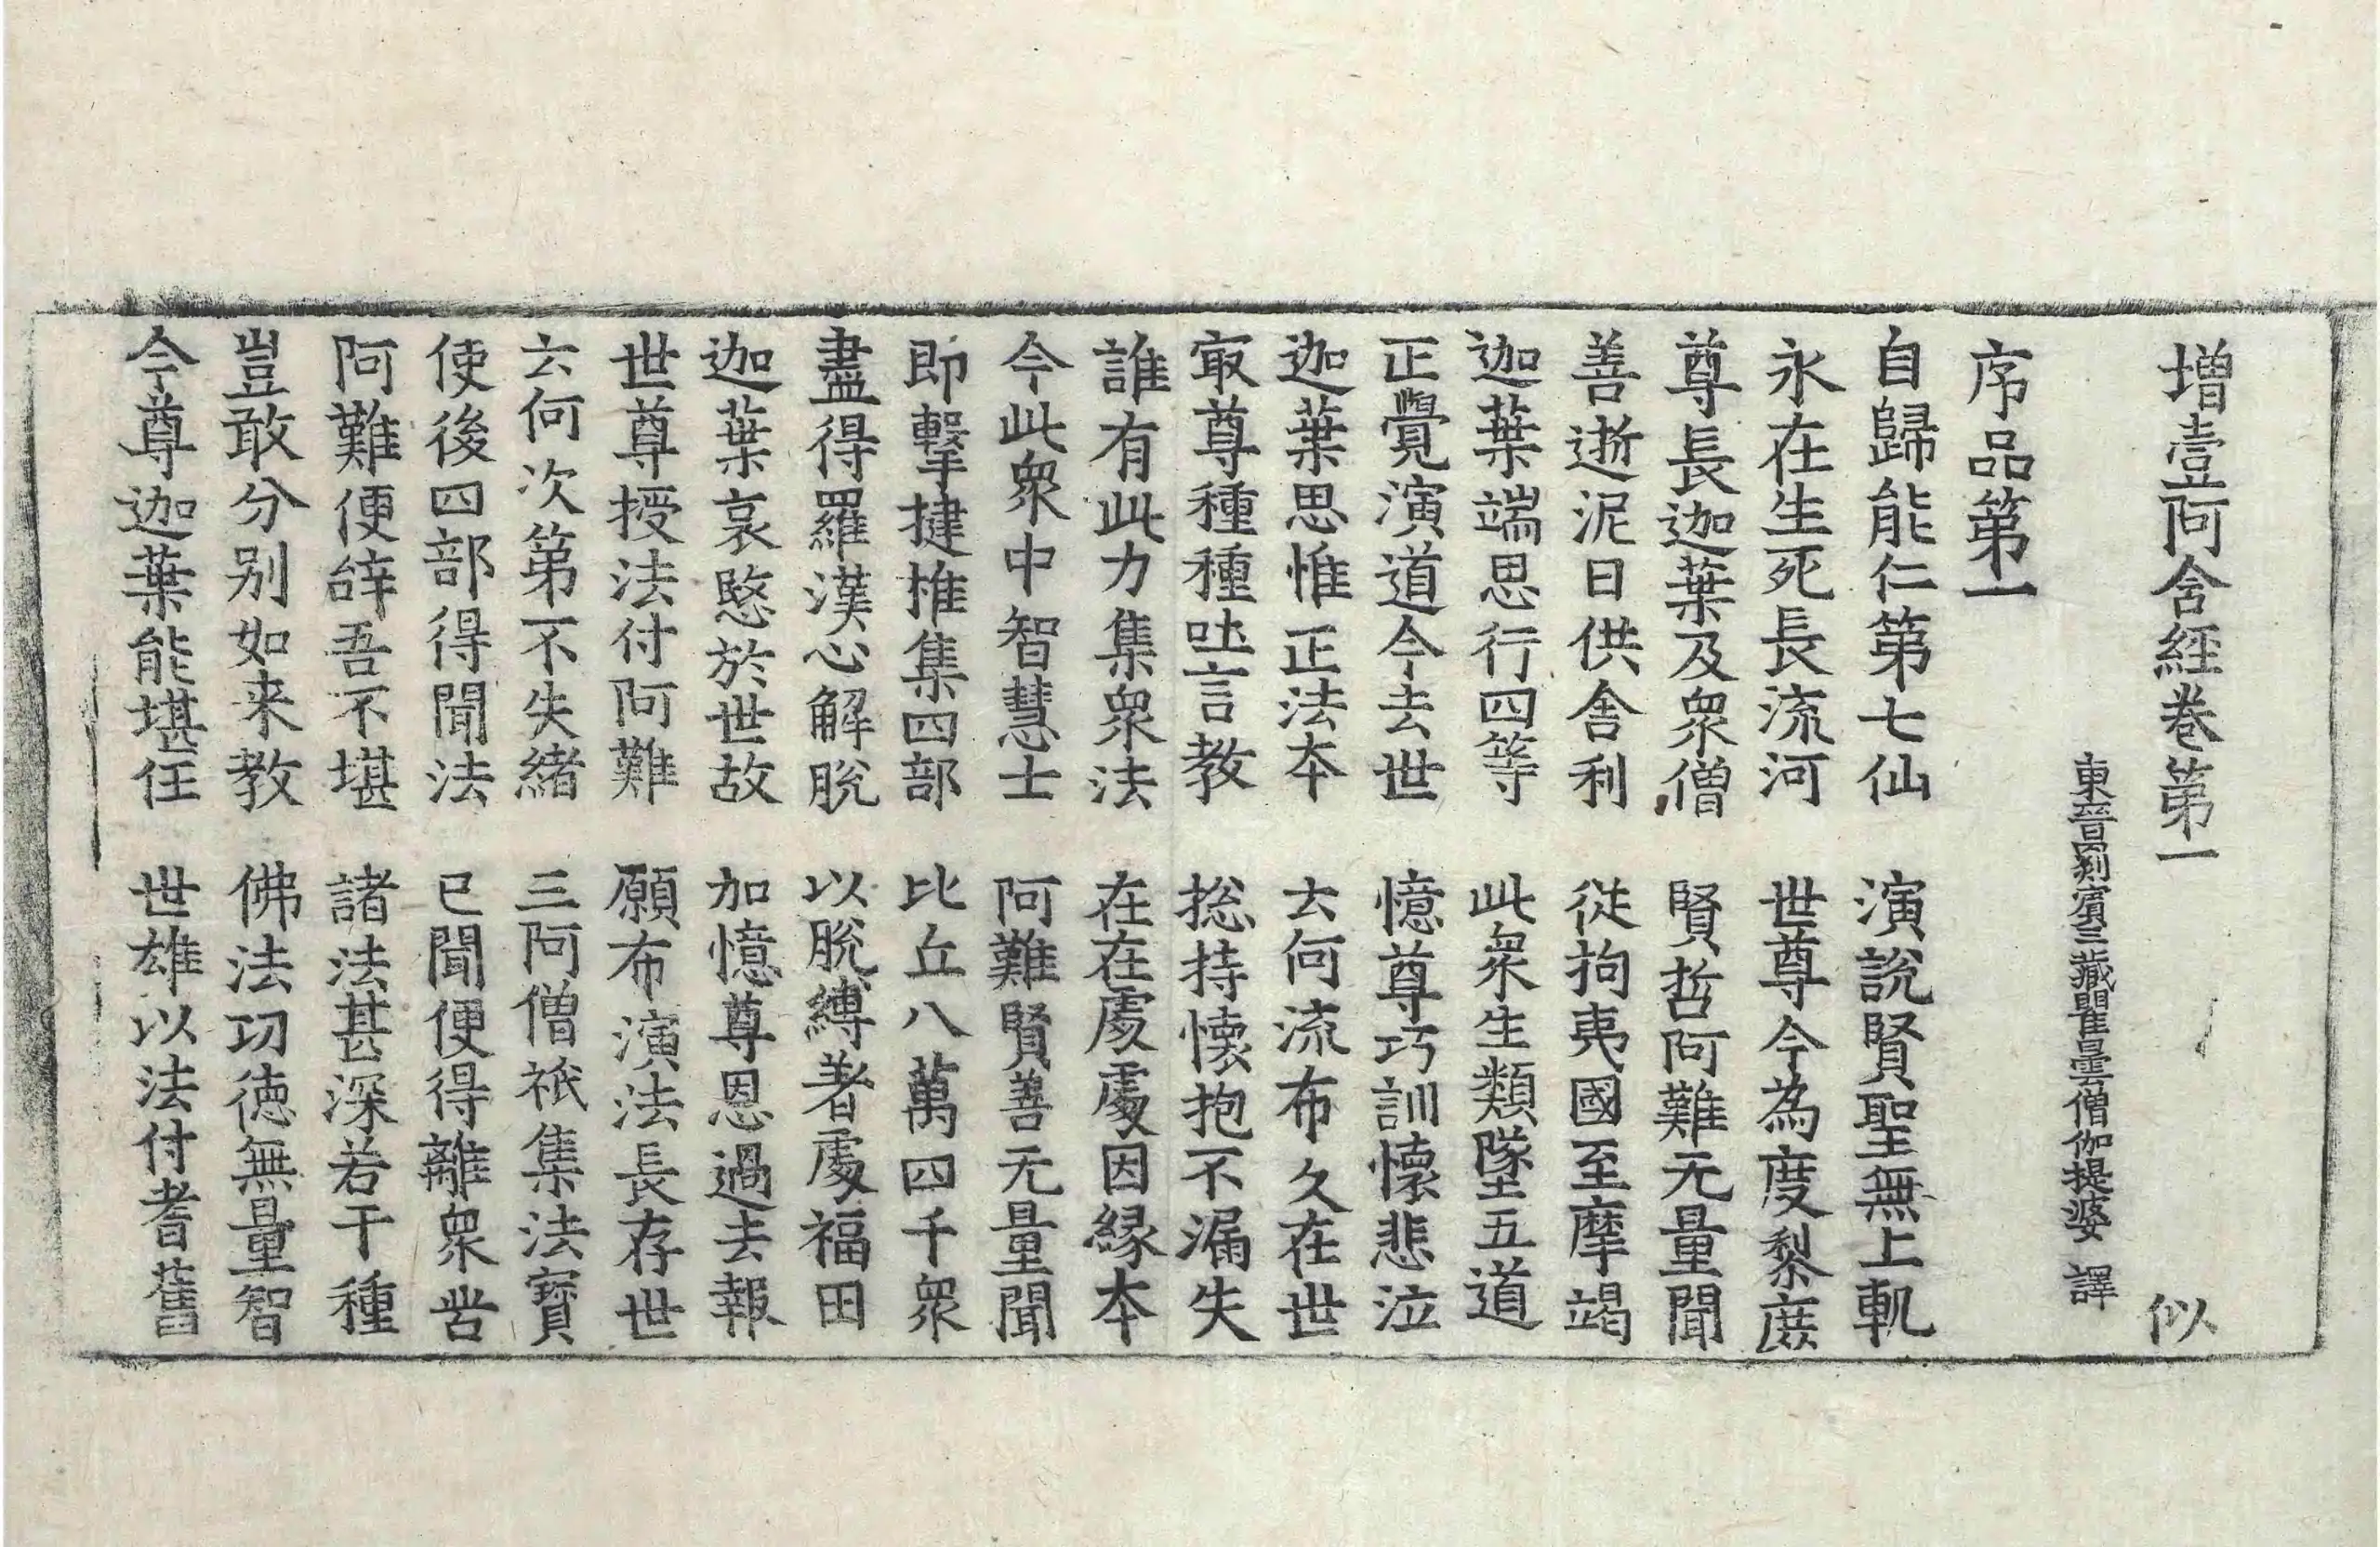 增壹阿含經卷第一 似
東晉罽賓三藏瞿曇僧伽提婆 譯
序品第一
自歸能仁第七仙 演說賢聖無上軌
永在生死長流河 世尊今為度黎庶
尊長迦葉及眾僧 賢哲阿難无量聞
善逝泥曰供舍利 從拘夷國至摩竭
迦葉端思行四等 此眾生類墜五道
正覺演道今去世 憶尊巧訓懷悲泣
迦葉思惟正法夲 云何流布久在世
冣尊種種吐言教 捴持懷抱不漏失
誰有此力集眾法 在在處處因緣夲
今此眾中智慧士 阿難賢善无量聞
即擊揵椎集四部 比丘八萬四千眾
盡得羅漢心解脫 以脫縛著處福田
迦葉哀愍於世故 加憶尊恩過去報
世尊授法付阿難 願布演法長存世
云何次第不失緒 三阿僧祇集法寶
使後四部得聞法 已聞便得離眾苦
阿難便辝吾不堪 諸法甚深若干種
豈敢分别如来教 佛法功德無量智
今尊迦葉能堪任 世雄以法付耆舊